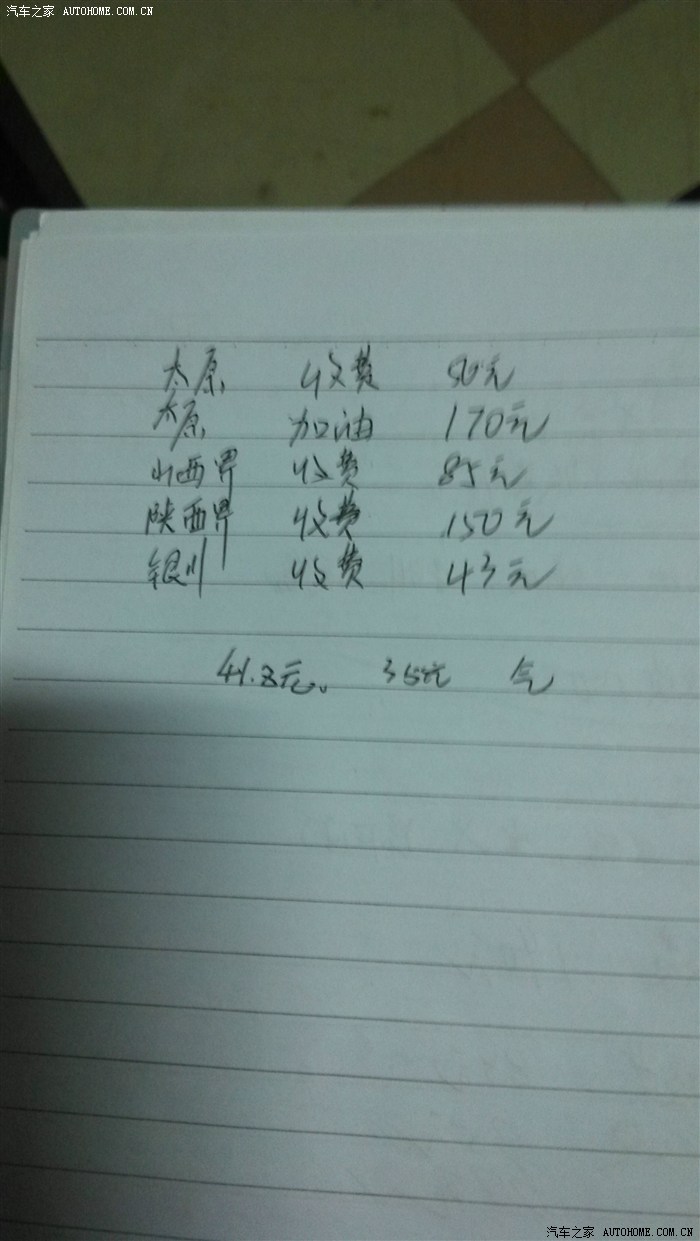 汽车之家 AUTOHOME.COM.CN
太原 收费 50元
太原 加油 170元
山西界 收费 85元
陕西界 收费 150元
银川 收费 43元
41.8元。 35元 气
汽车之家 AUTOHOME.COM.CN